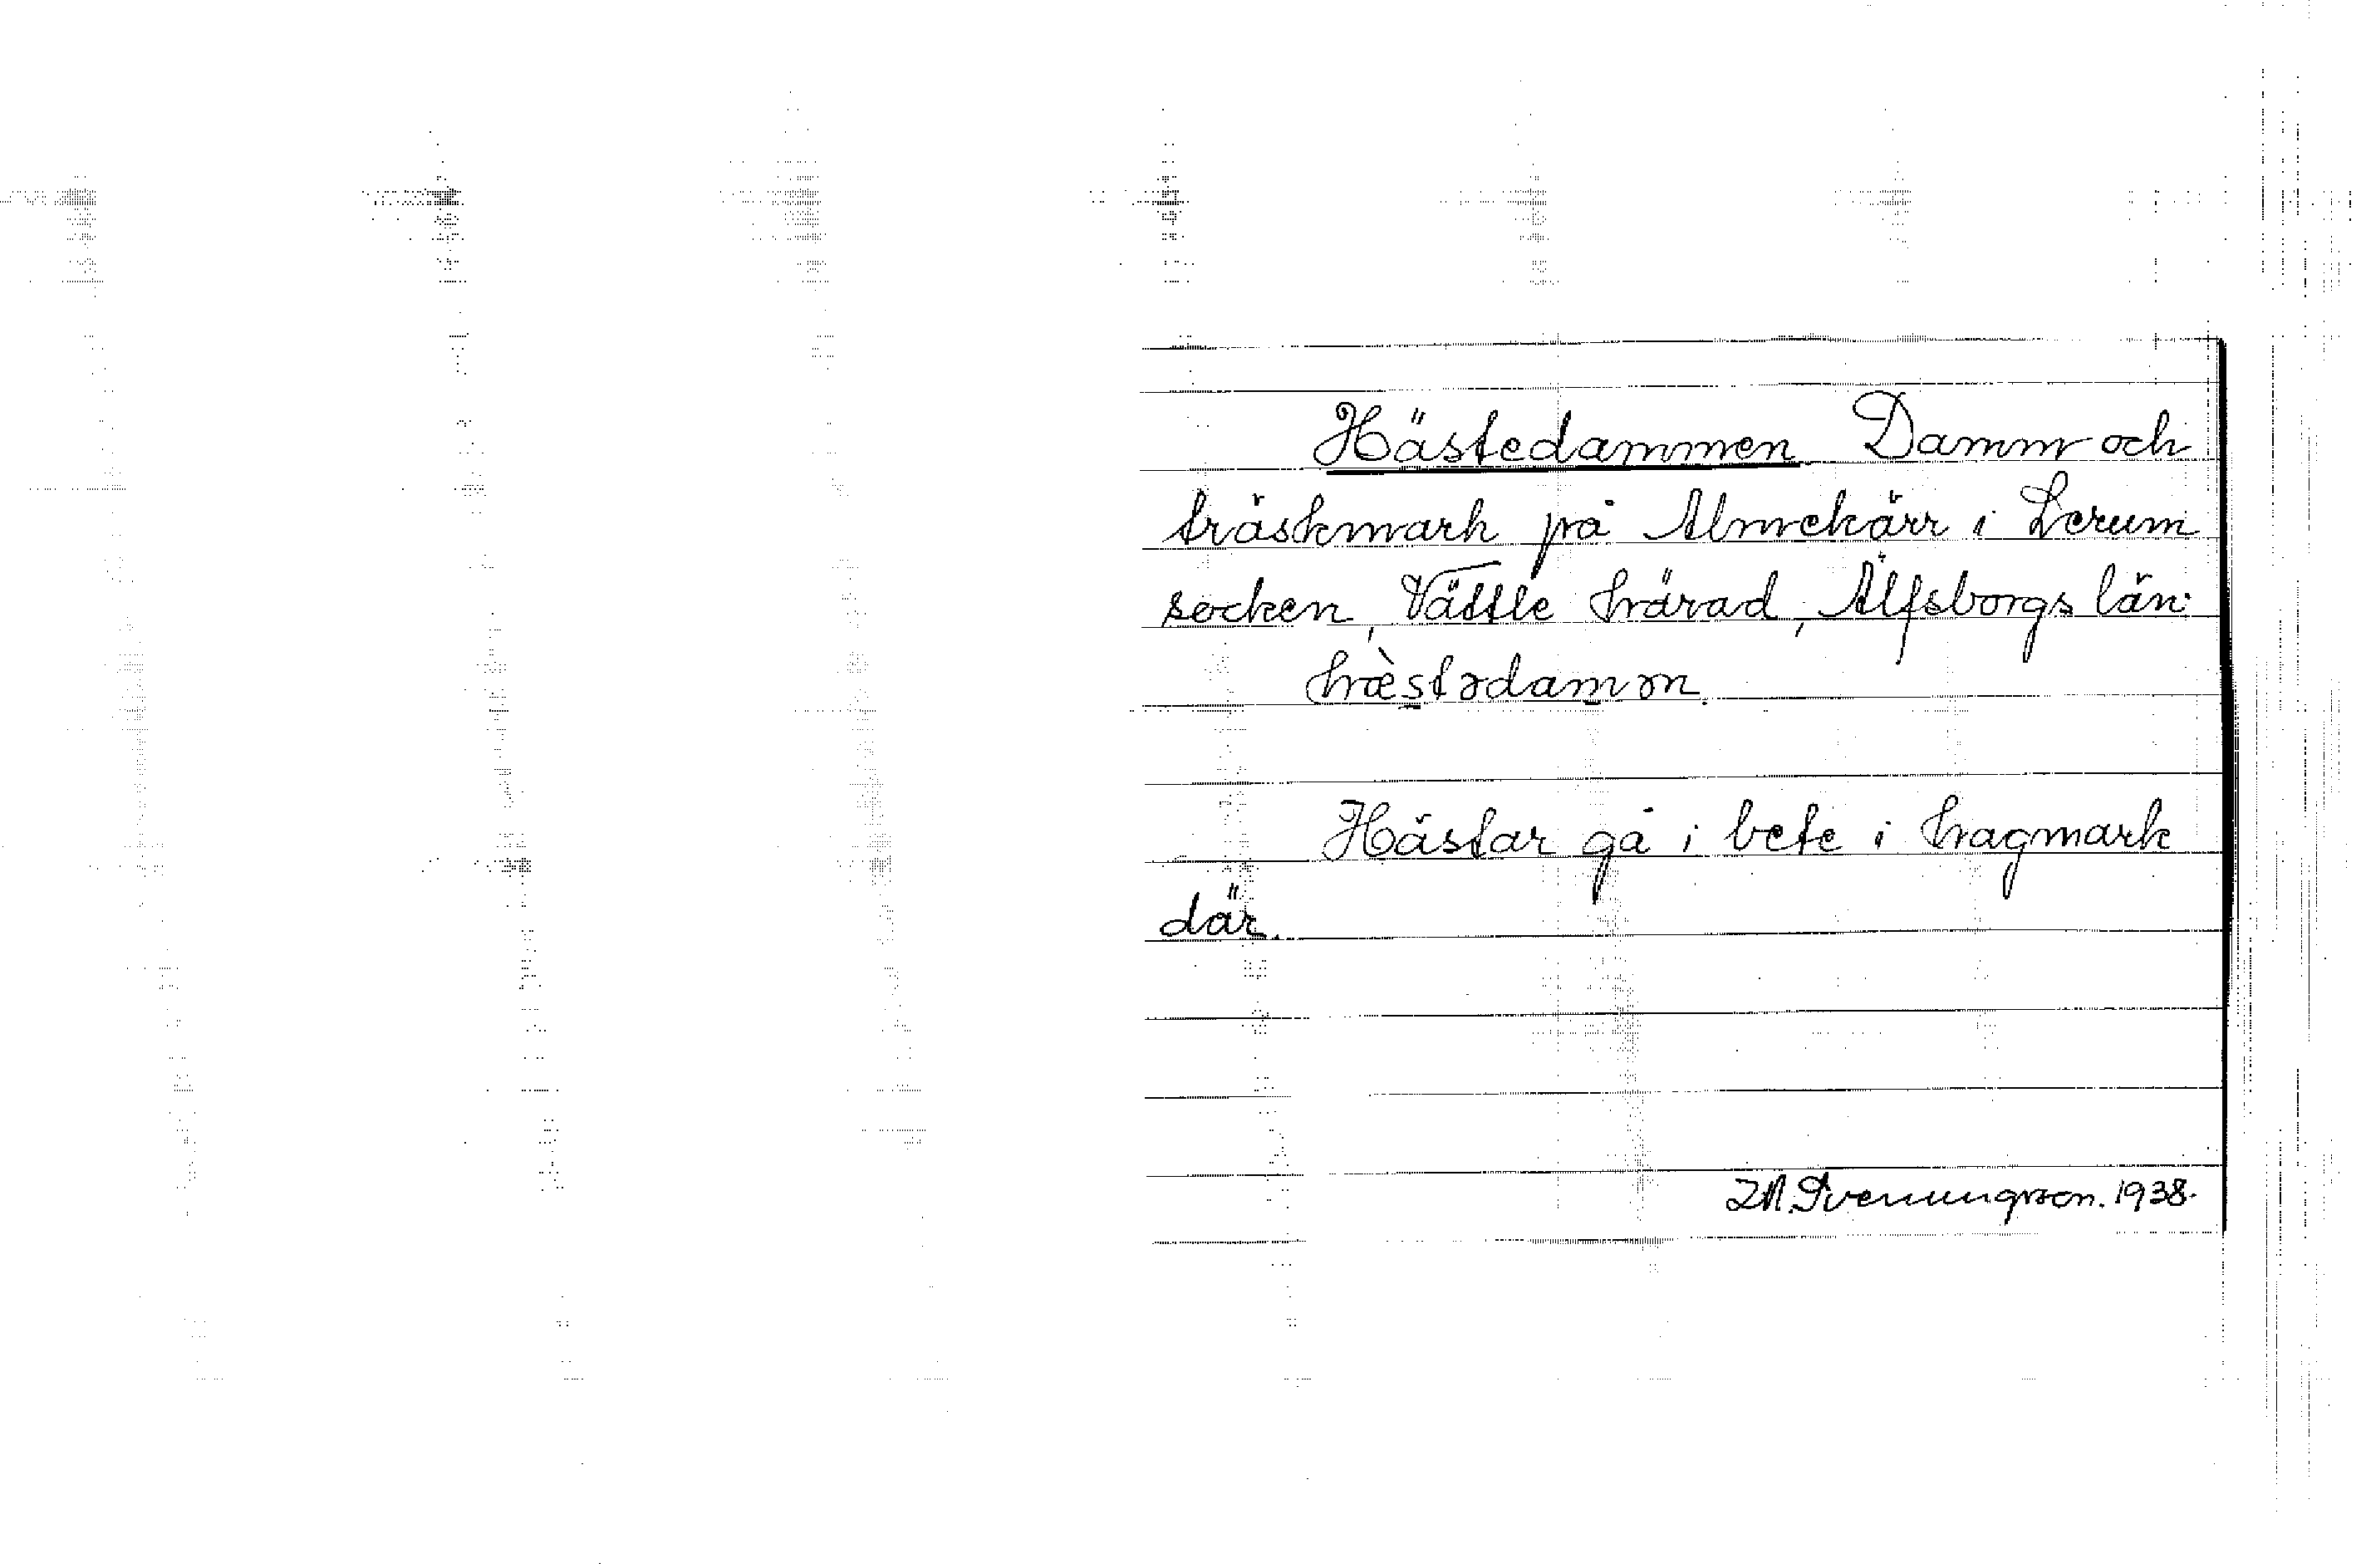 Hästedammen Damm och
träskmark på Almekärr i Lerum
socken, Vättle härad, Älfsborgs län.
hæ̀stədamən.
Hästar gå i bete i hagmark
där.
Svenungsson. 1938.